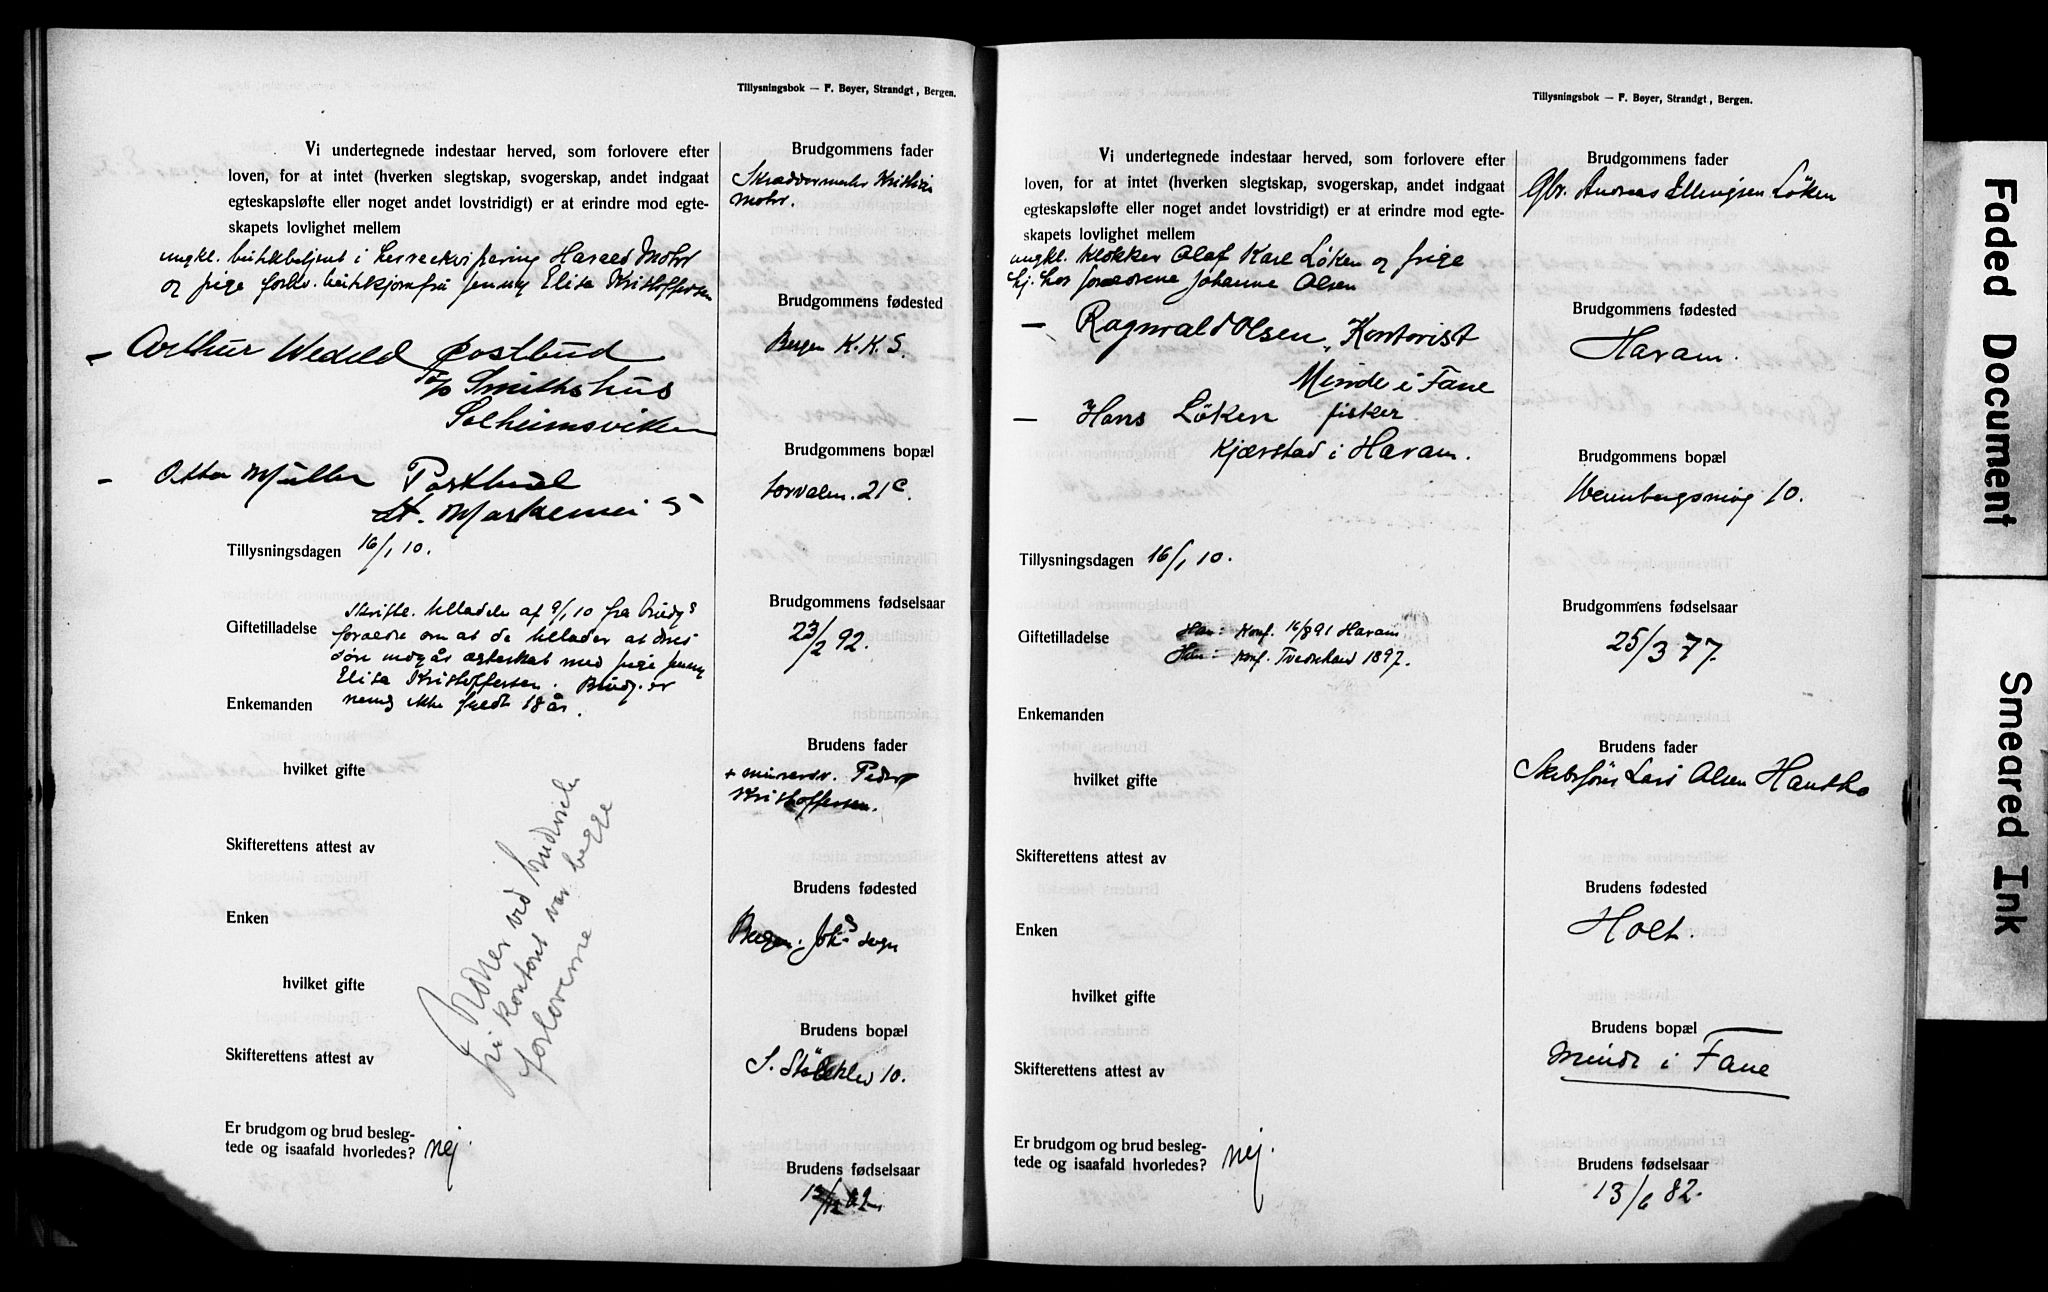 Tillysningsbok — F. Beyer, Strandgt, Bergen.
Vi undertegnede indestaar herved, som forlovere efter
loven, for at intet (hverken slegtskap, svogerskap, andet indgaat
egteskapsløfte eller noget andet lovstridigt) er at erindre mod egte-
skapets lovlighet mellem
ungkl. butikbetjent i herreekvipering Harald Mohr
og pige forhv. butikkjomfru Jenny Elisa Kristoffersen
— Arthur Wedeld Postbud
Smithshus
Solheimsviken
— Otto Müller Postbud
St. Markevei 5
Tillysningsdagen 16/1 10.
Giftetilladelse
Skriftl. tilladelse af 9/1 10 fra brudg.s
forældre om at de tillader at deres
søn indgår ægteskab med pige Jenny
Elisa Kristoffersen. Brudg. er
nemlig ikke fyldt 18 år.
Enkemanden
hvilket gifte
Skifterettens attest av
Enken
hvilket gifte
Skifterettens attest av
ved
kontoret var begge
forloverne
Er brudgom og brud besleg-
tede og isaafald hvorledes? nej.
Brudgommens fader
Skræddermester Kristian
Mohr.
Brudgommens fødested
Bergen K. K. S.
Brudgommens bopæl
21c.
Brudgommens fødselsaar
23/2 92.
Brudens fader
+ murersv. Peder
Kristoffersen.
Brudens fødested
Bergen. Joh.s sogn
Brudens bopæl
S. 10.
Brudens fødselsaar
Tillysningsbok — F. Beyer, Strandgt, Bergen.
Vi undertegnede indestaar herved, som forlovere efter
loven, for at intet (hverken slegtskap, svogerskap, andet indgaat
egteskapsløfte eller noget andet lovstridigt) er at erindre mod egte-
skapets lovlighet mellem
ungkl. klokker Olaf Karl Löken og pige
hj. hos forældrene Johanne Olsen
— Ragnvald Olsen, Kontorist
Minde i Fane
— Hans Löken fisker
Kjærstad i Haram.
Tillysningsdagen 16/1 10.
Giftetilladelse
Han: Konf. 16/8 91 Haram
Hun: Konf. Tvedestrand 1897.
Enkemanden
hvilket gifte
Skifterettens attest av
Enken
hvilket gifte
Skifterettens attest av
Er brudgom og brud besleg-
tede og isaafald hvorledes? nej.
Brudgommens fader
Gbr. Andreas Ellingsen Löken
Brudgommens fødested
Haram.
Brudgommens bopæl
Wernersgsmug 10.
Brudgommens fødselsaar
25/3 77.
Brudens fader
Skibsförer Lars Olsen
Brudens fødested
Holt.
Brudens bopæl
Minde i Fane
Brudens fødselsaar
13/6 82.
Faded Document
Smeared Ink